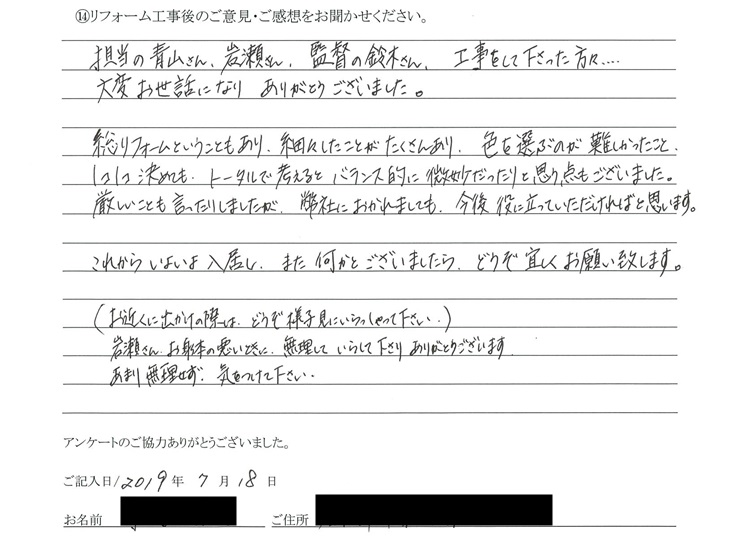 ⑭リフォーム工事後のご意見・ご感想をお聞かせください。
担当の青山さん、岩瀬さん、監督の鈴木さん、工事をして下さった方々‥‥
大変お世話になり ありがとうございました。
総リフォームということもあり、細々したことがたくさんあり、色を選ぶのが難しかったこと、
1コ1コ決めても、トータルで考えると バランス的に微妙だったりと思う点もございました。
厳しいことも言ったりしましたが、弊社におかれましても、今後役に立っていただければと思います。
これからいよいよ入居し、また何かとございましたら、どうぞ宜しくお願い致します。
(お近くに出かけの際は、どうぞ様子見にいらっしゃって下さい.)
岩瀬さん、お身体の悪いときに、無理していらして下さりありがとうございます.
あまり無理せず、気をつけて下さい.
アンケートのご協力ありがとうございました。
ご記入日/2019年7月18日
お名前 ご住所